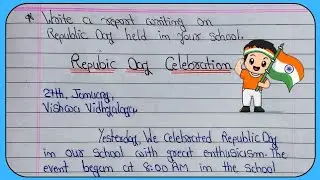 * Write a report writing on
Republic Day held in your school.
Repubic Day Celebration
27th, January,
Vishwa Vidhyalaya
Yesterday, We celebrated Republic Day
in our school with great enthusicism. The
event began at 8:00 AM in the school